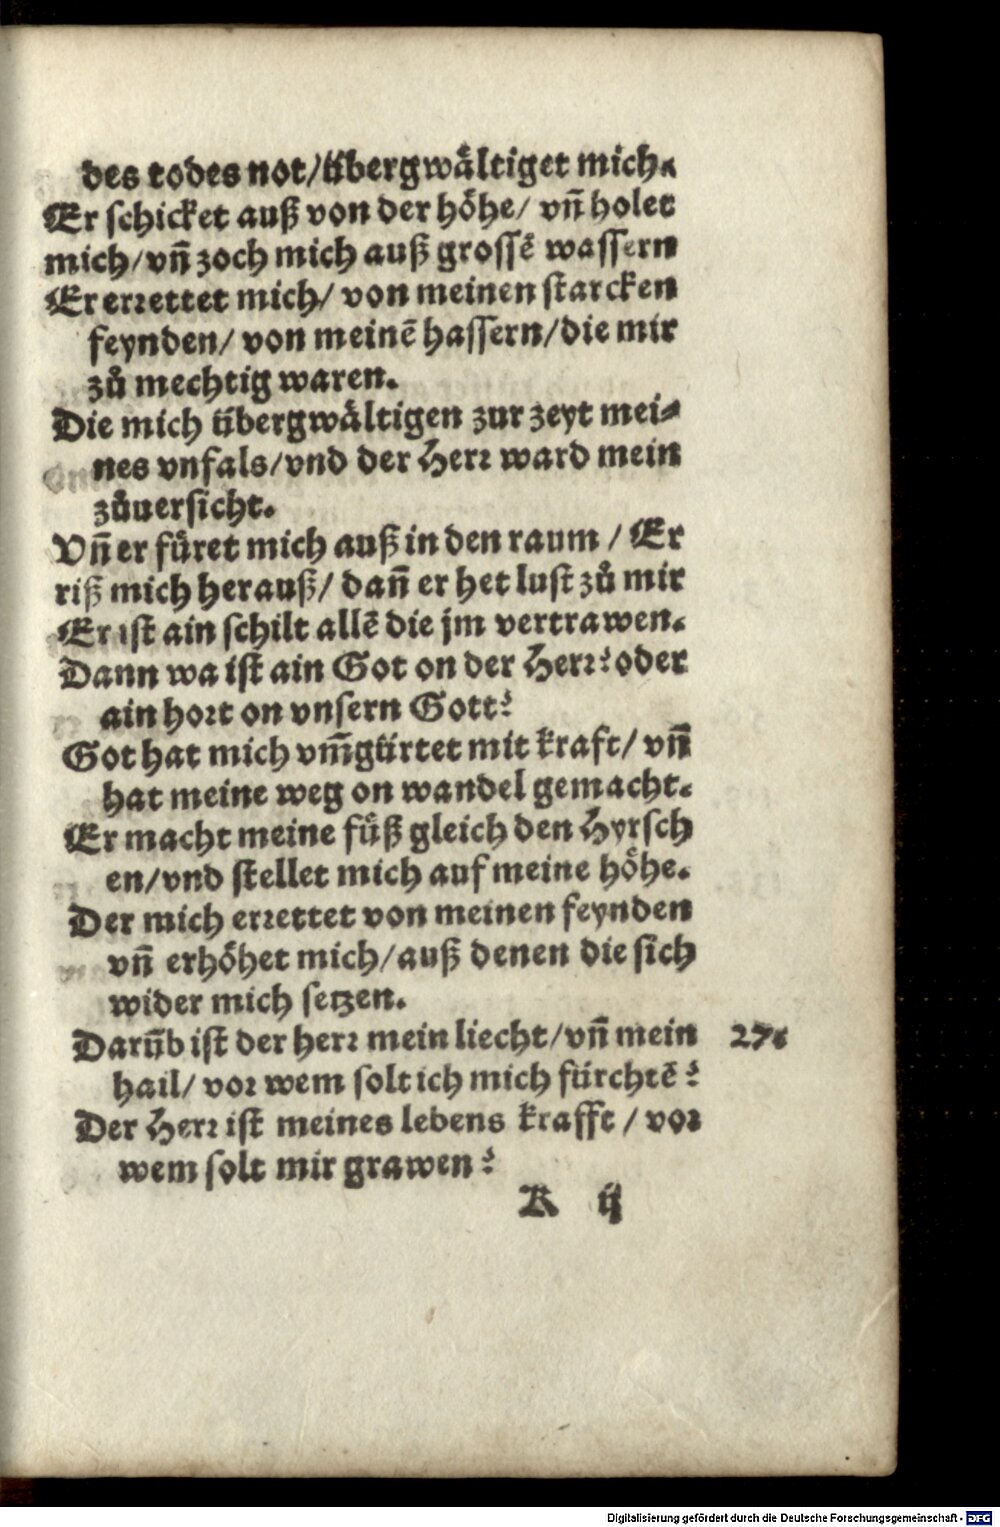 des todes not/übergwåltiget mich.
Er schicket auß von der höhe/ vñ holet
mich/vñ zoch mich auß grossẽ wassern
Er errettet mich/ von meinen starcken
feynden/ von meinẽ hassern/die mir
zů mechtig waren.
Die mich übergwåltigen zur zeyt mei⸗
nes vnfals/vnd der Herr ward mein
zůuersicht.
Vñ er füret mich auß in den raum / Er
riß mich herauß/ dañ er het lust zů mir
Er ist ain schilt allẽ die jm vertrawen.
Dann wa ist ain Got on der Herr? oder
ain hort on vnsern Gott?
Got hat mich vm̃gürtet mit kraft/ vñ
hat meine weg on wandel gemacht.
Er macht meine füß gleich den Hyrsch
en/vnd stellet mich auf meine höhe.
Der mich errettet von meinen feynden
vñ erhöhet mich/auß denen die sich
wider mich setzen.
Darũb ist der herr mein liecht/vñ mein 27.
hail/ vor wem solt ich mich fürchtẽ?
Der Herr ist meines lebens krafft / vor
wem solt mir grawen?
K ij
Digitalisierung gefördert durch die Deutsche Forschungsgemeinschaft - DFG